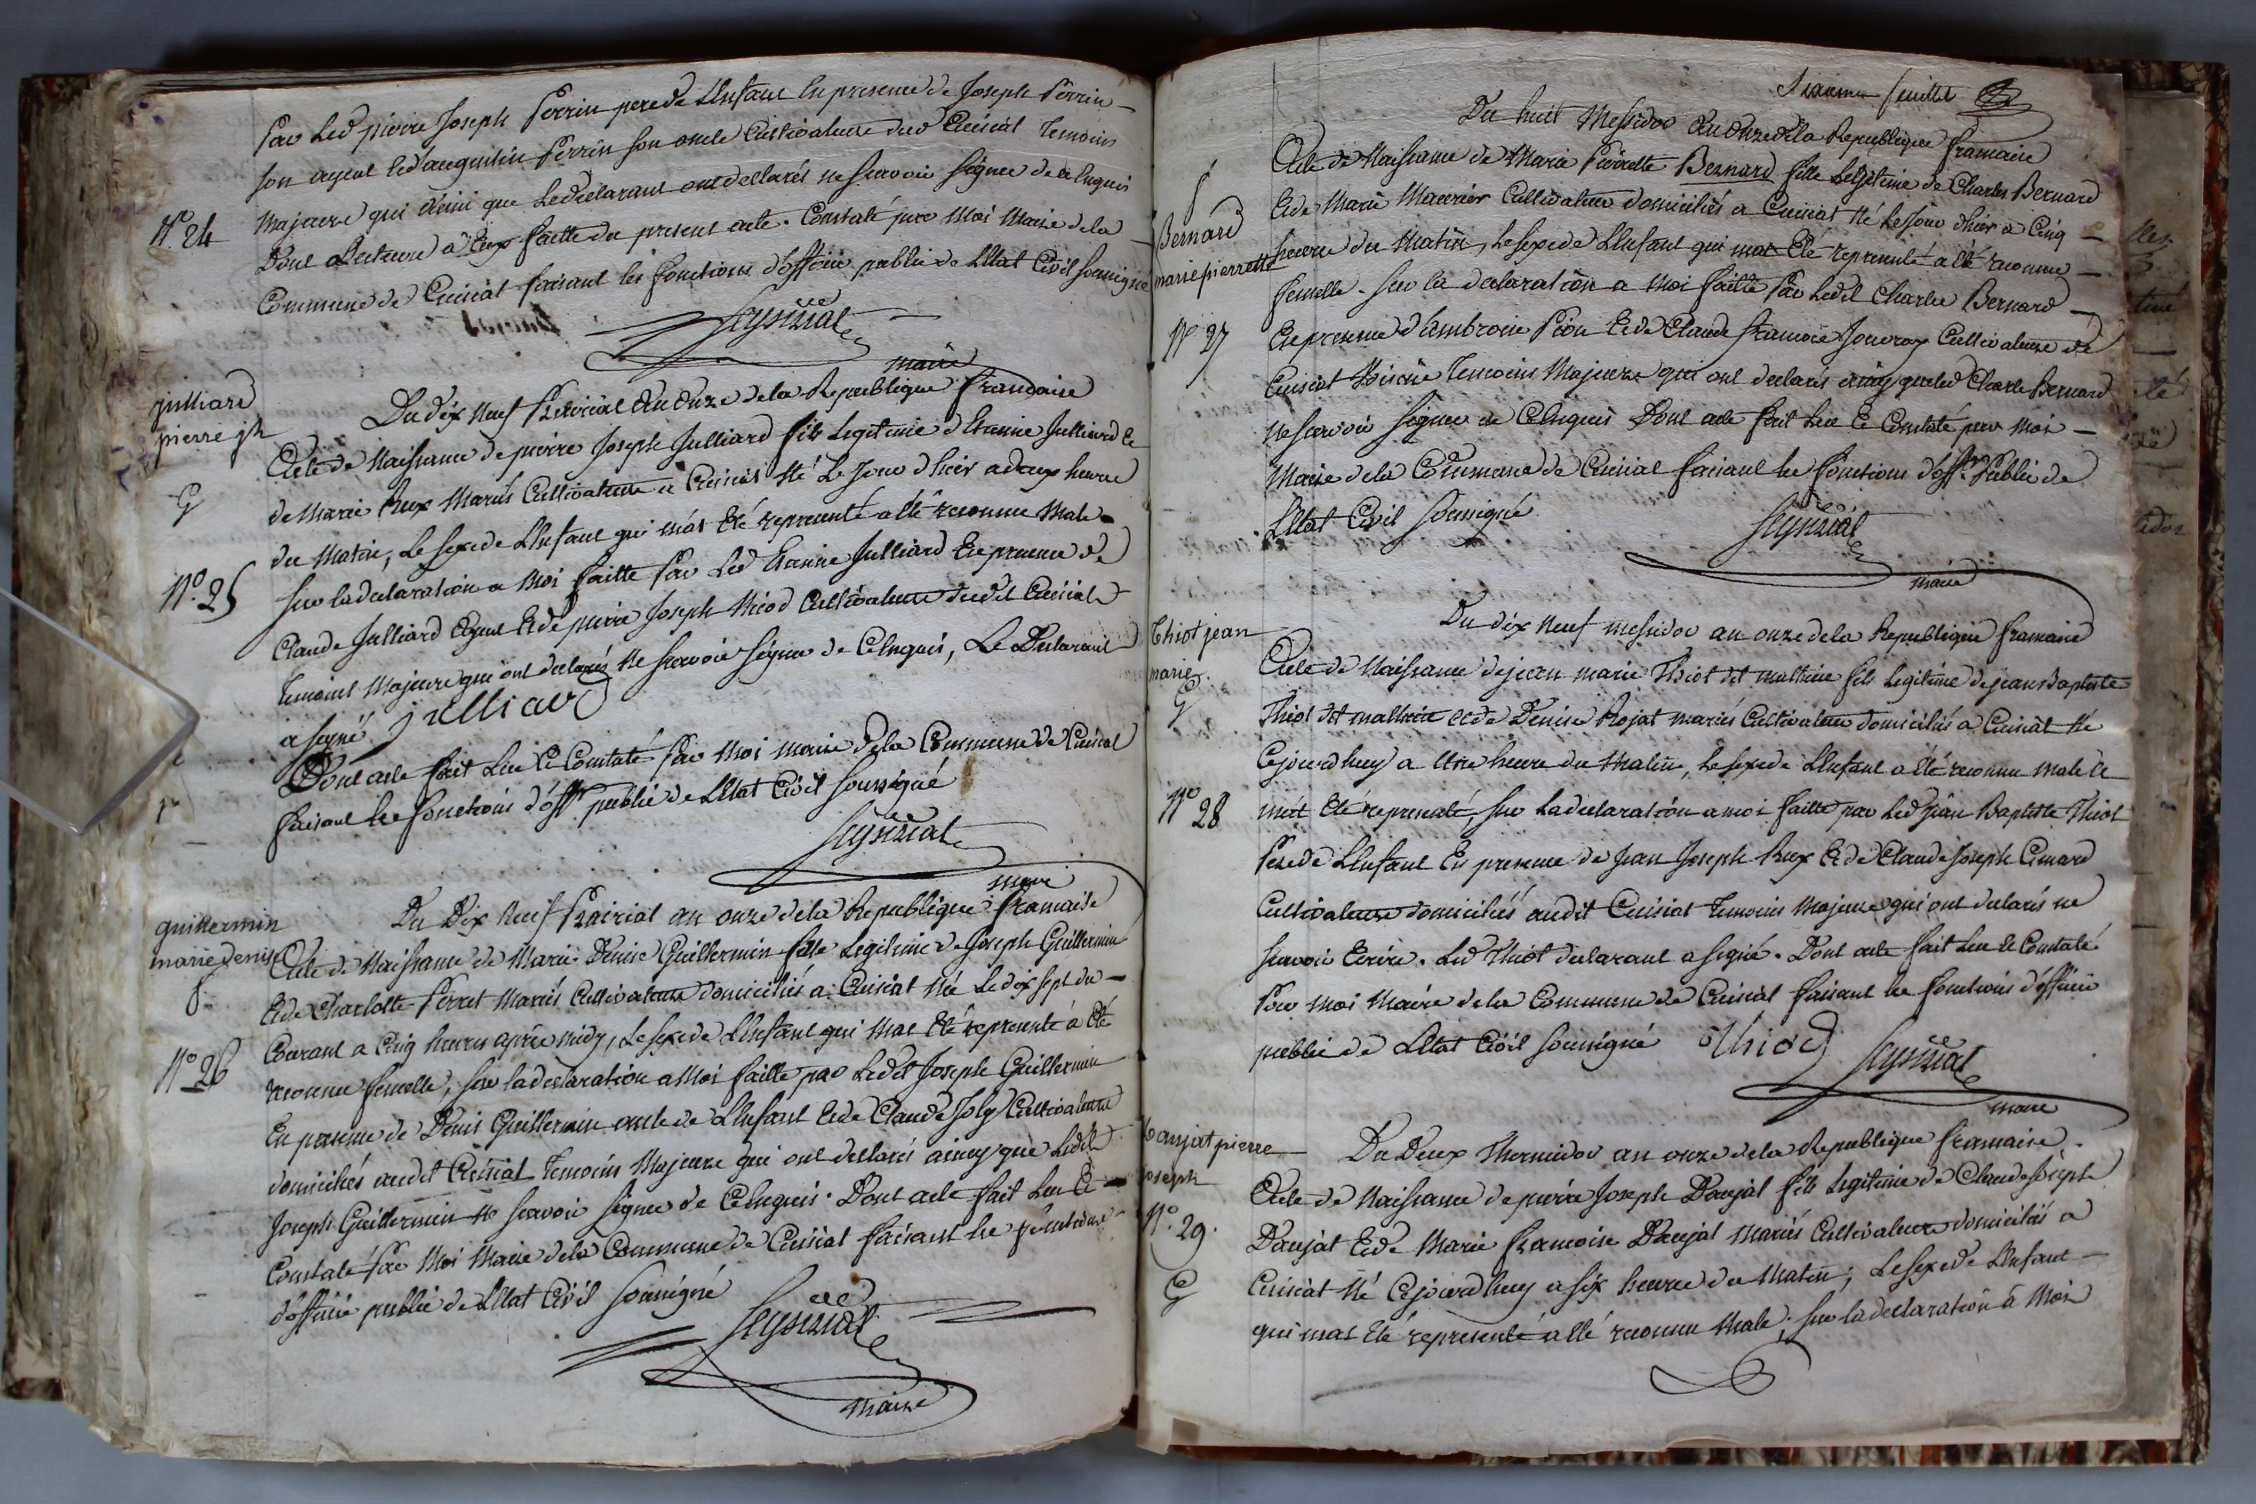 Par led pierre Joseph Perrin pere de L'Enfant En presence de Joseph Perrin
son ayeul led augustin Perrin son oncle Cultivateurs dud Cuisiat Temoins
N.º 24
Majeure qui ainsi que le declarant ont declarés ne scavoir signer de ce Enquis
Dont Lecture à Eux faitte du present acte. Constaté par Moi Maire de la
Commune de Cuisiat faisant les fonctions d'officier public de L'Etat Civil soussigné
maire
julliard
pierre jh
G
Nº. 25
Du dix Neuf Prairial an onze de la Republique francaise
Acte de Naissance de pierre Joseph Julliard fils Legitime d'Etienne Julliard Et
de Marie Rux Mariés Cultivateurs a Cuisiat Né Le Jour d'hier a deux heure
du Matin, Le sexe de L'Enfant qui m'at Eté representé a été reconnu Male
sur la declaration a Moi faitte Par Led Etienne Julliard En presence de
Claude Julliard Ayeul Et de pierre Joseph Nicod Cultivateurs dudit Cuisiat
Temoins Majeure qui ont declarés Ne scavoir signer de Ce Enquis, Le Declarant
a signé Julliard
Dont acte fait Lu Et Constaté Par Moi maire de la Commune de Cuisiat
faisant les fonctions d'offr. public de L'Etat Civil soussigné
maire
guillermin
marie denise
f
Nº 26
Du Dix Neuf Prairial an onze de la Republique francaise
Acte de Naissance de Marie Denise Guillermin fille Legitime de Joseph Guillermin
Et de Charlotte Perret Mariés Cultivateurs domiciliés a Cuisiat Née Le dix sept du
Courant a Cinq heures aprés midy, Le sexe de L'Enfant qui Mat Eté representé à Eté
reconnu femelle, sur la declaration a Moi faitte par Ledit Joseph Guillermin
En presence de Denis Guillermin oncle de L'Enfant Et de Claude Joly Cultivateurs
domiciliés audit Cuisiat Temoins Majeure qui ont declarés ainsy que Ledit
Joseph Guillermin Ne scavoir signer de Ce Enquis. Dont acte fait Lu Et
Constaté Par Moi Maire de la Commune de Cuisiat faisant les fonctions
d'officié public de L'Etat Civil soussigné
Maire
Sixieme feuillet
f
Bernard
marie pierrette
Nº 27
Du huit Messidor an onze de la Republique francaise
Acte de Naissance de Marie Pierrette Bernard fille Legitime de Charles Bernard
Et de Marie Maurier Cultivateurs domiciliés a Cuisiat Né Le Jour d'hier a Cinq
heures du Matin, Le sexe de L'Enfant qui mat Eté representé a été reconnu
femelle. sur la declaration a Moi faitte Par Ledit Charles Bernard
En presence d'ambroise Pion Et de Claude francois Jouvray Cultivateurs de
Cuisiat Temoins Majeure qui ont declarés ainsy que led Charle Bernard
Ne scavoir signer de Ce Enquis Dont acte fait Lu Et Constaté par Moi
Maire de la Commune de Cuisiat faisant les fonctions d'offr. Public de
L'Etat Civil soussigné
maire
Thiot jean
marie
G
Nº 28
Du dix Neuf messidor an onze de la Republique francaise
Acte de Naissance de jean marie Thiot dit mathieu fils Legitime de jean Baptiste
Thiot dit mathieu et de Denise Rojat mariés Cultivateurs domiciliés a Cuisiat Né
Cejourdhuy a Une heure du Matin, Le sexe de L'Enfant a été reconnu male Et
m'at Eté representé, sur La declaration a moi faitte par Led Jean Baptiste Thiot
Pere de L'Enfant En presence de Jean Joseph Rux Et de Claude Joseph Cunard
Cultivateurs domiciliés audit Cuisiat Temoins Majeure qui ont declarés ne
scavoir Ecrire. Led Thiot declarant a signé. Dont acte fait Lu Et Constaté
Par Moi Maire de la Commune de Cuisiat faisant les fonctions d'officié
public de L'Etat Civil soussigné Thiod
maire
Danjat pierre
Joseph
Nº. 29.
G
Du Deux Thermidor an onze de la Republique francaise.
Acte de Naissance de pierre Joseph Danjat fils Legitime de Claude Joseph
Danjat Et de Marie francoise Danjat Mariés Cultivateurs domiciliés a
Cuisiat Né Cejourdhuy a six heures du Matin; Le sexe de L'Enfant
qui mat Eté representé a été reconnu Male; sur la declaration à Moi